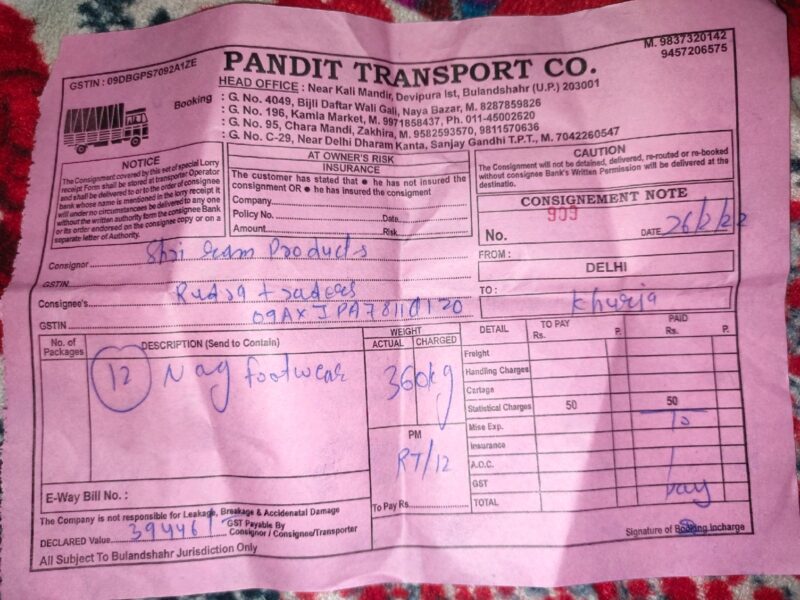 GSTIN : 09DBGPS7092A1ZE
M. 9837320142
9457206575
PANDIT TRANSPORT CO.
HEAD OFFICE : Near Kali Mandir, Devipura Ist, Bulandshahr (U.P.) 203001
Booking : G. No. 4049, Bijli Daftar Wali Gali, Naya Bazar, M. 8287859826
: G. No. 196, Kamla Market, M. 9971858437, Ph. 011-45002620
: G. No. 95, Chara Mandi, Zakhira, M. 9582593570, 9811570636
: G. No. C-29, Near Delhi Dharam Kanta, Sanjay Gandhi T.P.T., M. 7042260547
NOTICE
The Consignment covered by this set of special Lorry
receipt Form shall be stored at transporter Operator
and shall be delivered to or to the order of consignee
bank whose name is mentioned in the lorry receipt. It
will under no circumstances be delivered to any one
without the written authority form the consignee Bank
or its order endorsed on the consignee copy or on a
separate letter of Authority.
AT OWNER'S RISK
INSURANCE
The customer has stated that ● he has not insured the
consignment OR ● he has insured the consigment
Company
Policy No. Date
Amount Risk
CAUTION
The Consignment will not be detained, delivered, re-routed or re-booked
without consignee Bank's Written Permission will be delivered at the
destinatio.
CONSIGNEMENT NOTE
No. 909 DATE 26/2/22
Consignor Shri ram Products
GSTIN
Consignee's Rudra traders
GSTIN
FROM :
DELHI
TO :
Khurja
No. of Packages DESCRIPTION (Send to Contain) WEIGHT ACTUAL CHARGED DETAIL TO PAY Rs. P. PAID Rs. P.
12 Nag footwear 360kg
Freight
Handling Charges
Cartage
Statistical Charges 50 50
Mise Exp. To
Insurance
A.O.C.
GST pay
TOTAL
PM
RT/12
To Pay Rs
E-Way Bill No. :
The Company is not responsible for Leakage, Breakage & Accidenatal Damage
DECLARED Value 39446 GST Payable By
Consignor / Consignee/Transporter
All Subject To Bulandshahr Jurisdiction Only
Signature of Booking Incharge